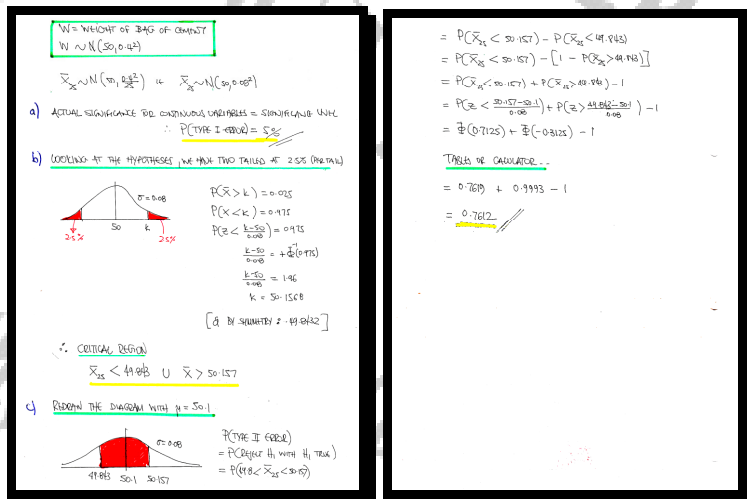 W = WEIGHT OF BAG OF CEMENT
W ~ N(50, 0.4²)
X̄₂₅ ~ N(50, 0.4²/25) ie X̄₂₅ ~ N(50, 0.08²)
a) ACTUAL SIGNIFICANCE FOR CONTINUOUS VARIABLES = SIGNIFICANCE LEVEL
∴ P(TYPE I ERROR) = 5%
b) LOOKING AT THE HYPOTHESES, WE HAVE TWO TAILED AT 2.5% (PER TAIL)
σ = 0.08
50 k
2.5% 2.5%
P(X̄ > k) = 0.025
P(X̄ < k) = 0.975
P(Z < (k-50)/0.08) = 0.975
(k-50)/0.08 = +Φ⁻¹(0.975)
(k-50)/0.08 = 1.96
k = 50.1568
[& BY SYMMETRY : 49.8432]
∴ CRITICAL REGION
X̄₂₅ < 49.843 U X̄ > 50.157
c) REDRAW THE DIAGRAM WITH μ = 50.1
σ = 0.08
49.843 50.1 50.157
P(TYPE II ERROR)
= P(REJECT H₁ WITH H₁ TRUE)
= P(49.8< X̄₂₅ < 50.157)
= P(X̄₂₅ < 50.157) - P(X̄₂₅ < 49.843)
= P(X̄₂₅ < 50.157) - [1 - P(X̄₂₅ > 49.843)]
= P(X̄₂₅ < 50.157) + P(X̄₂₅ > 49.843) - 1
= P(Z < (50.157-50.1)/0.08) + P(Z > (49.843-50.1)/0.08) - 1
= Φ(0.7125) + Φ(-0.3125) - 1
TABLES OR CALCULATOR...
= 0.7619 + 0.9993 - 1
= 0.7612